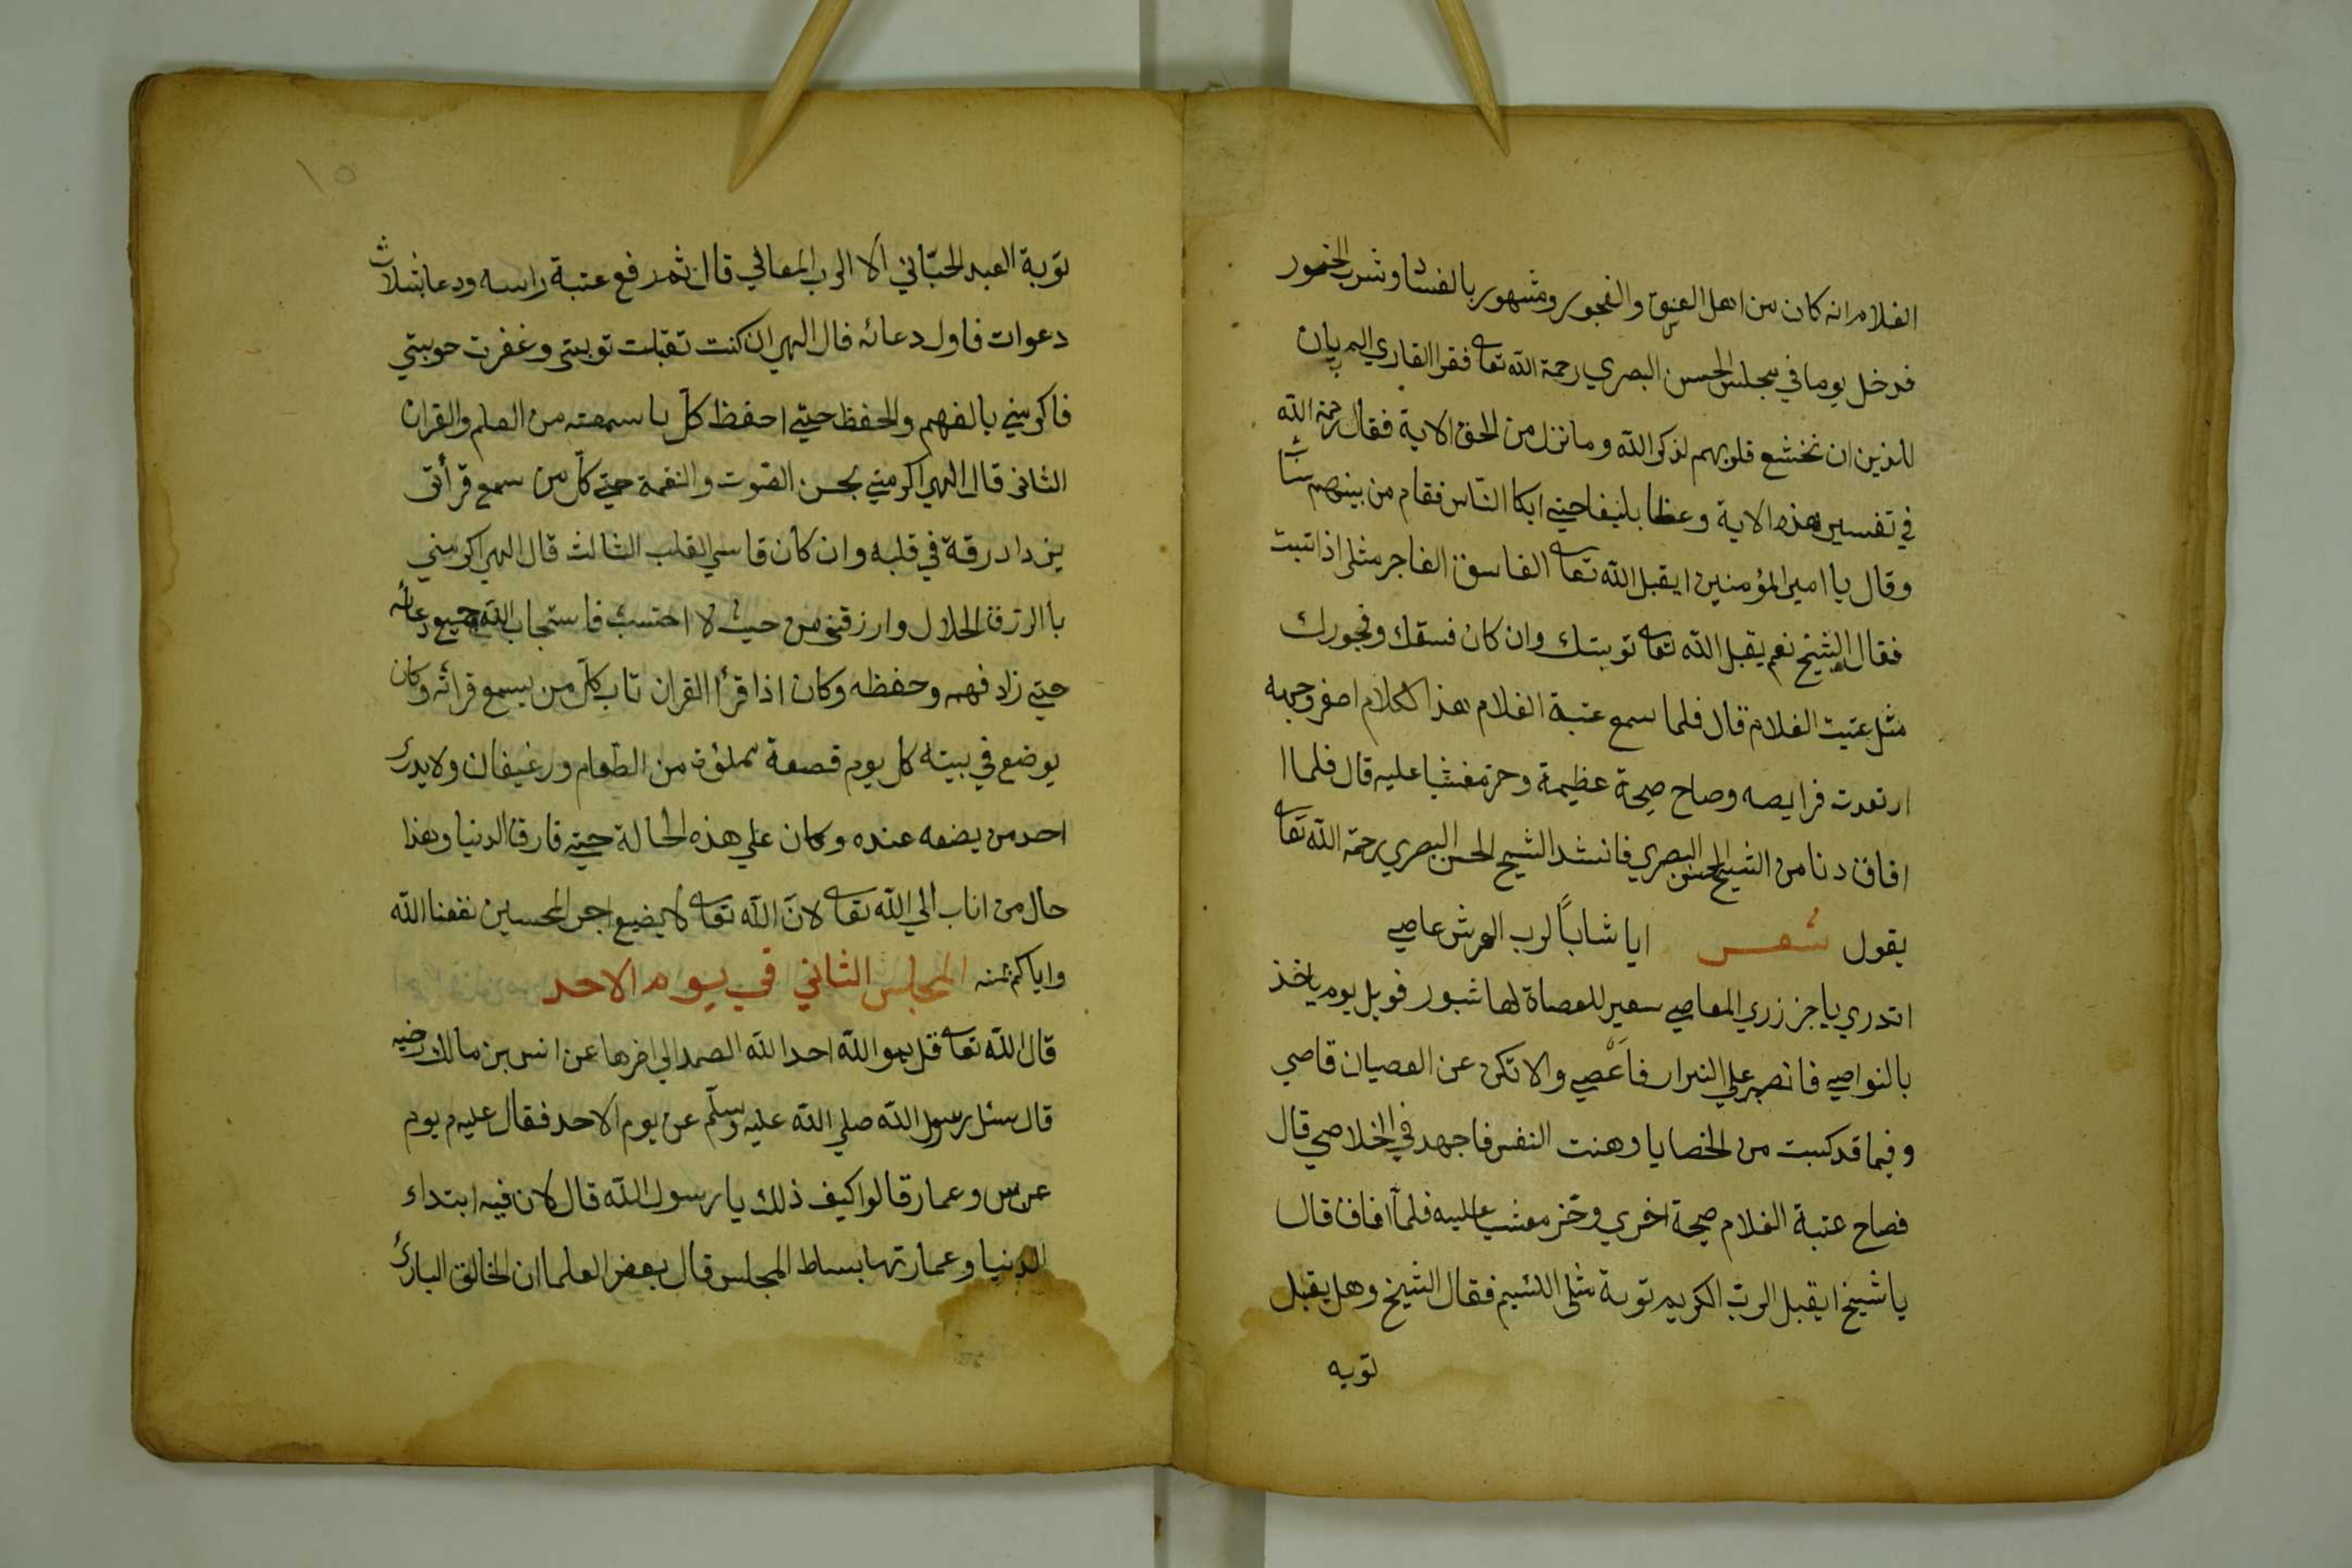 الغلام انه كان من اهل الفسق والفجور ومشهور بالفساد وشرب الخمور
فدخل يوما في مجلس الحسن البصري رحمة الله تعا فقرا القاري الم يان
للذين ان تخشع قلوبهم لذكر الله وما نزل من الحق الاية فقال رحمة الله
في تفسير هذه الاية وعظا بليغا حتي ابكا الناس فقام من بينهم شاب
وقال يا امير المؤمنين ايقبل الله تعا الفاسق الفاجر مثلي اذا تبت
فقال الشيخ نعم يقبل الله تعا توبتك وان كان فسقك وفجورك
مثل عتبت الغلام قال فلما سمع عتبة الغلام هذا الكلام اصفر وجهه
ارتعدت فرايصه وصاح صيحة عظيمة وخر مغشيا عليه قال فلما ا
افاق دنا من الشيخ الحسن البصري فانشد الشيخ الحسن البصري رحمة الله تعا
يقول شعر ايا شاباً لرب العرش عاصي
اتدري يا جز زري المعاصي سعير للعصاة لها شبور فويل يوم ياخذ
بالنواصي فا تصبر علي النيران فاعصي والا تكن عن العصيان قاصي
وفيما قد كسبت من الخصايا وهنت النفس فاجهد في الخلاصي قال
فصاح عتبة الغلام صيحة اخري وخر مغشيا عليه فلما افاق قال
يا شيخ ايقبل الرب الكريم توبة مثلي اللئيم فقال الشيخ وهل يقبل
توبه
١٥
توبة العبد الجاني الا الرب المعافي قال ثم رفع عتبة راسه ودعا بثلاث
دعوات فاول دعائه قال الهي ان كنت تقبلت توبتي وغفرت حوبتي
فاكرمني بالفهم والحفظ حتي احفظ كل ما سمعته من العلم والقران
الثاني قال الهي اكرمني بحسن الصوت والنغمة حتي كل من سمع قرأتي
يزداد رقة في قلبه وان كان قاسي القلب الثالث قال الهي اكرمني
بالرزق الحلال وارزقني من حيث لا احتسب فاستجاب الله جميع دعائه
حتي زاد فهمه وحفظه وكان اذا قرأ القران تاب كل من يسمع قرائه وكان
يوضع في بيته كل يوم قصعة مملؤة من الطعام ورغيفان ولا يدرك
احد من يضعه عنده وكان علي هذه الحالة حتي فارق الدنيا وهذا
حال من اناب الي الله تعا لان الله تعا لا يضيع اجر المحسنين نفعنا الله
واياكم منه المجلس الثاني في يوم الاحد
قال الله تعا قل هو الله احد الله الصمد الي اخرها عن انس بن مالك رضيه
قال سئل رسول الله صلي الله عليه وسلم عن يوم الاحد فقال عليه م يوم
غرس وعمار قالوا كيف ذلك يا رسول الله قال لان فيه ابتداء
الدنيا وعمارتها بساط المجلس قال بعض العلما ان الخالق البارك